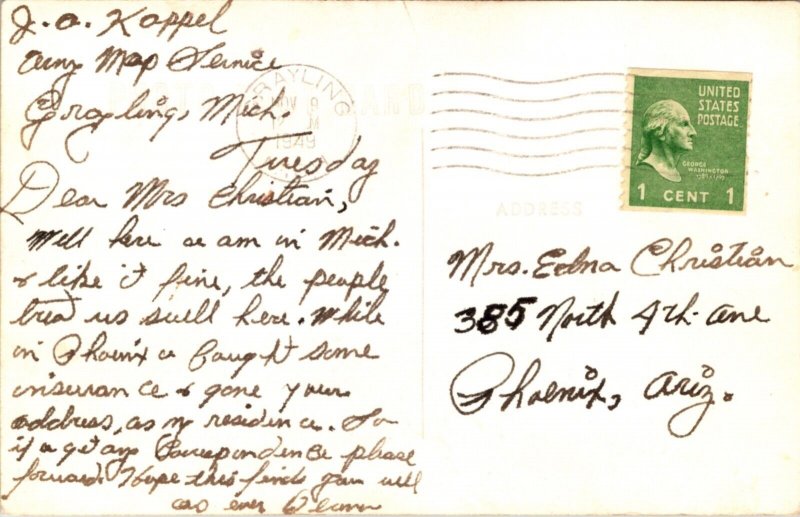 J. A. Kappel
Army Map Service
Grayling, Mich.
Tuesday
Dear Mrs Christian,
Well here a am in Mich.
& like it fine, the people
treat us swell here. While
in Phoenix a baught some
insurance & gave your
address, as my residence. So
if a get any Correspondence please
forward. Hope this finds you well
as ever
GRAYLING
NOV 9
M
1949
POST CARD
UNITED
STATES
POSTAGE
GEORGE
WASHINGTON
1789-1797
1 CENT 1
ADDRESS
Mrs. Edna Christian
385 North 4th. Ave
Phoenix, Ariz.